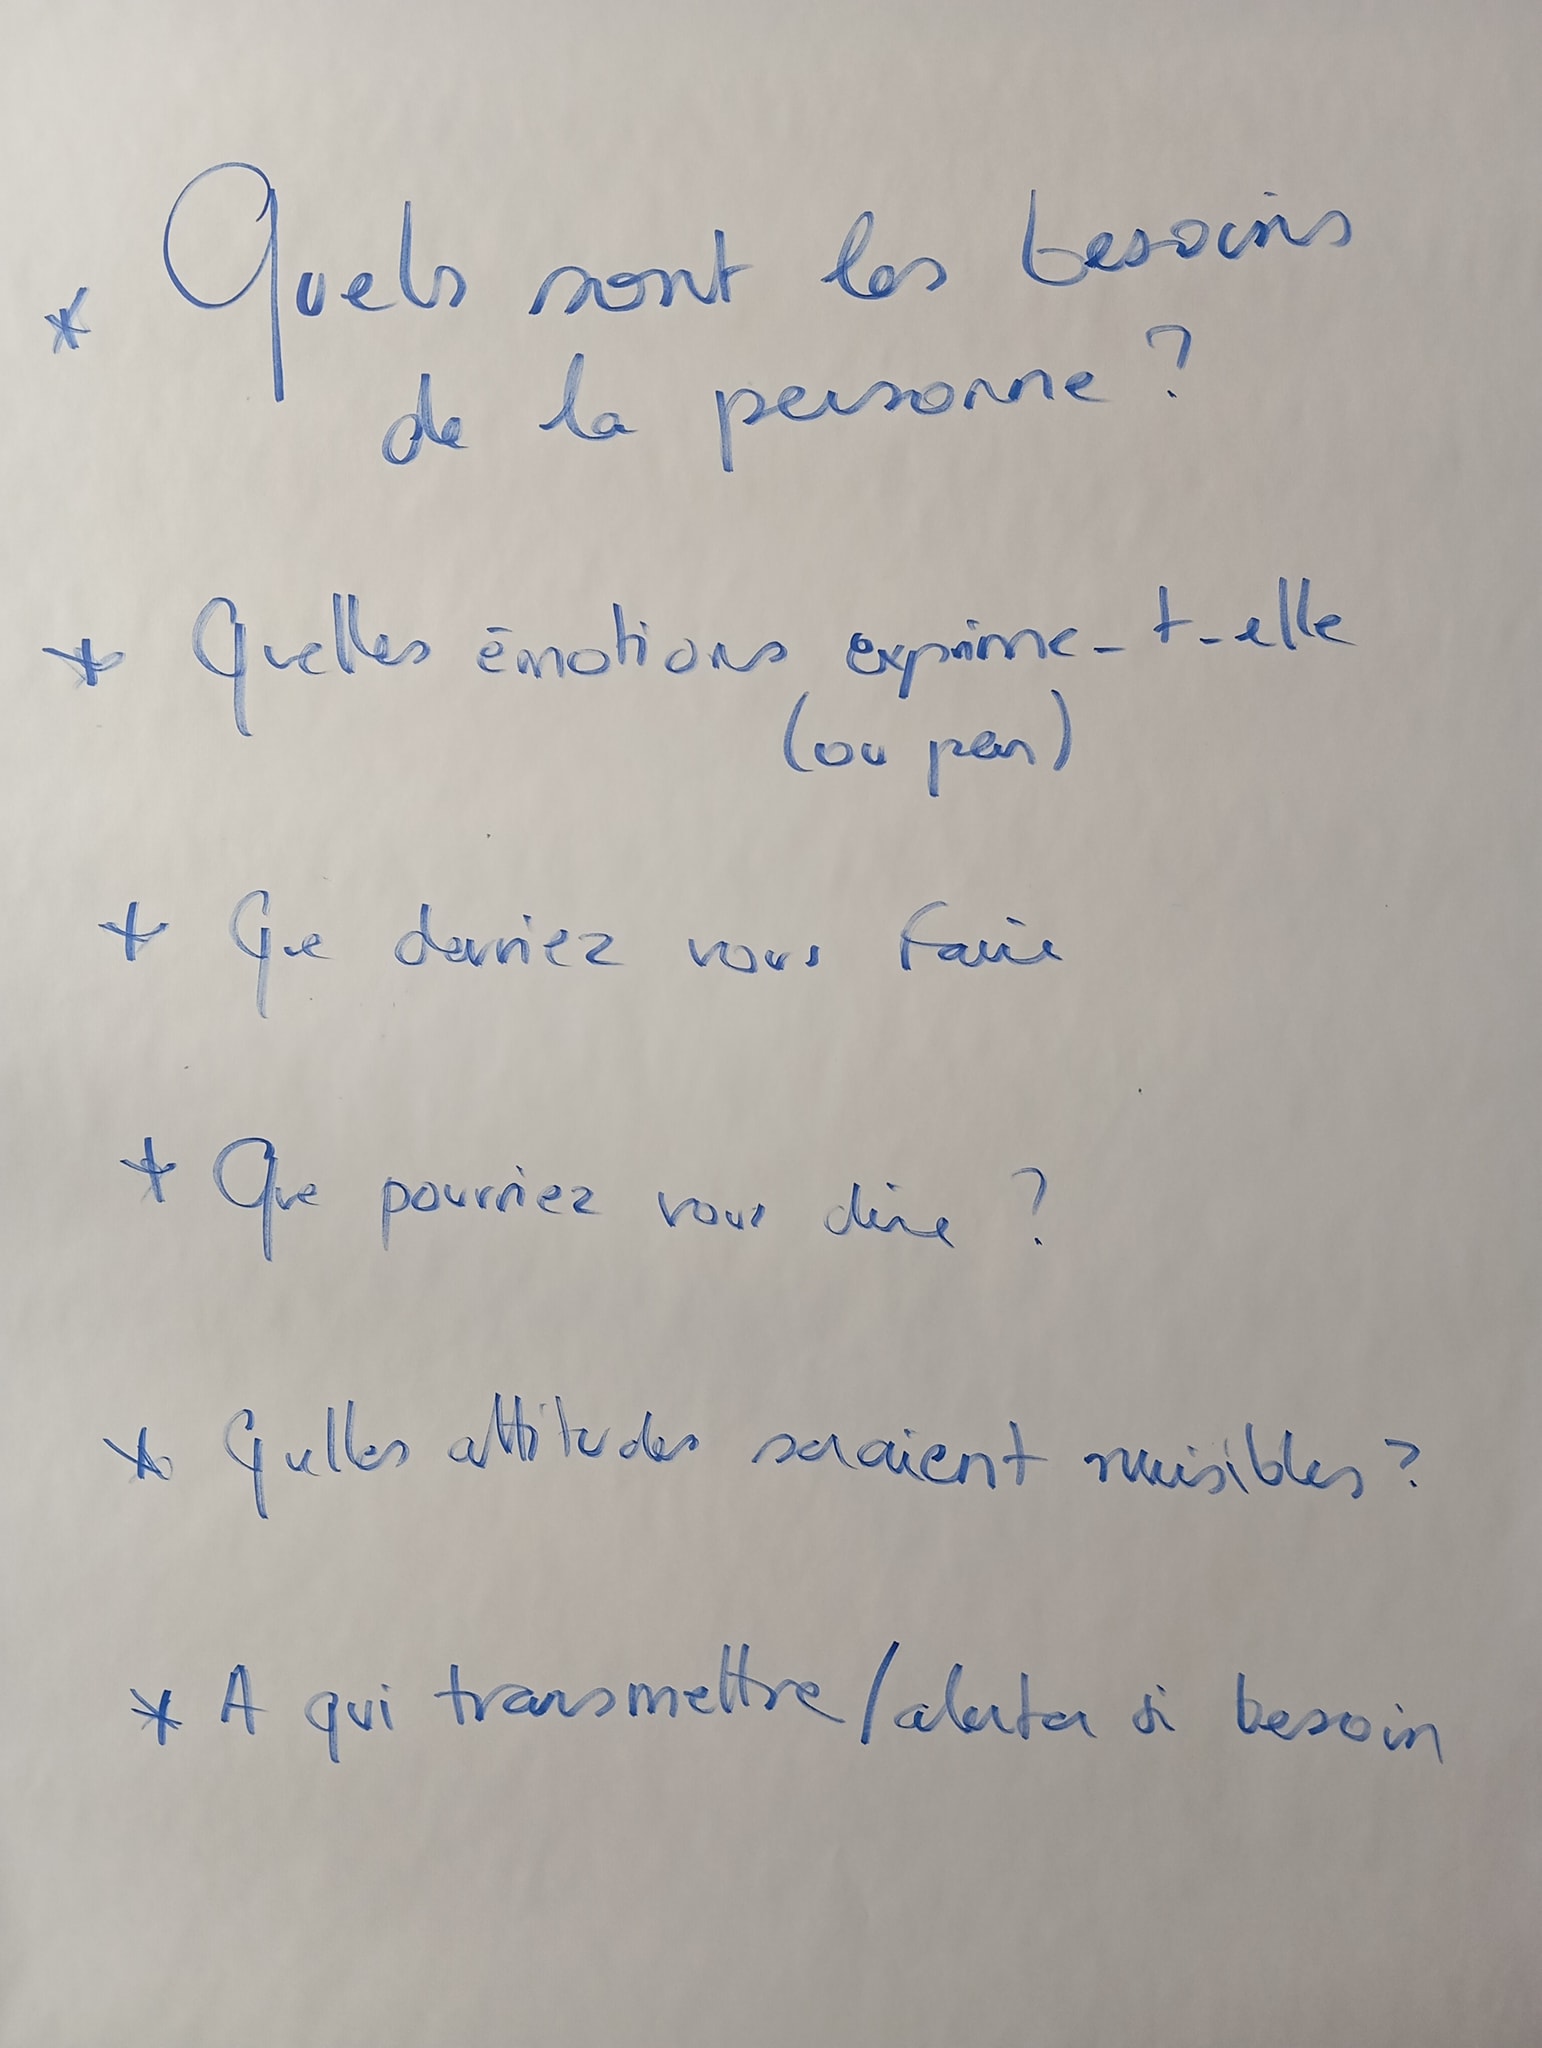 * Quels sont les besoins
de la personne ?
* Quelles émotions exprime-t-elle
(ou pas)
* Que devriez vous faire
* Que pourriez vous dire ?
* Quelles attitudes seraient nuisibles ?
* A qui transmettre/alerter si besoin